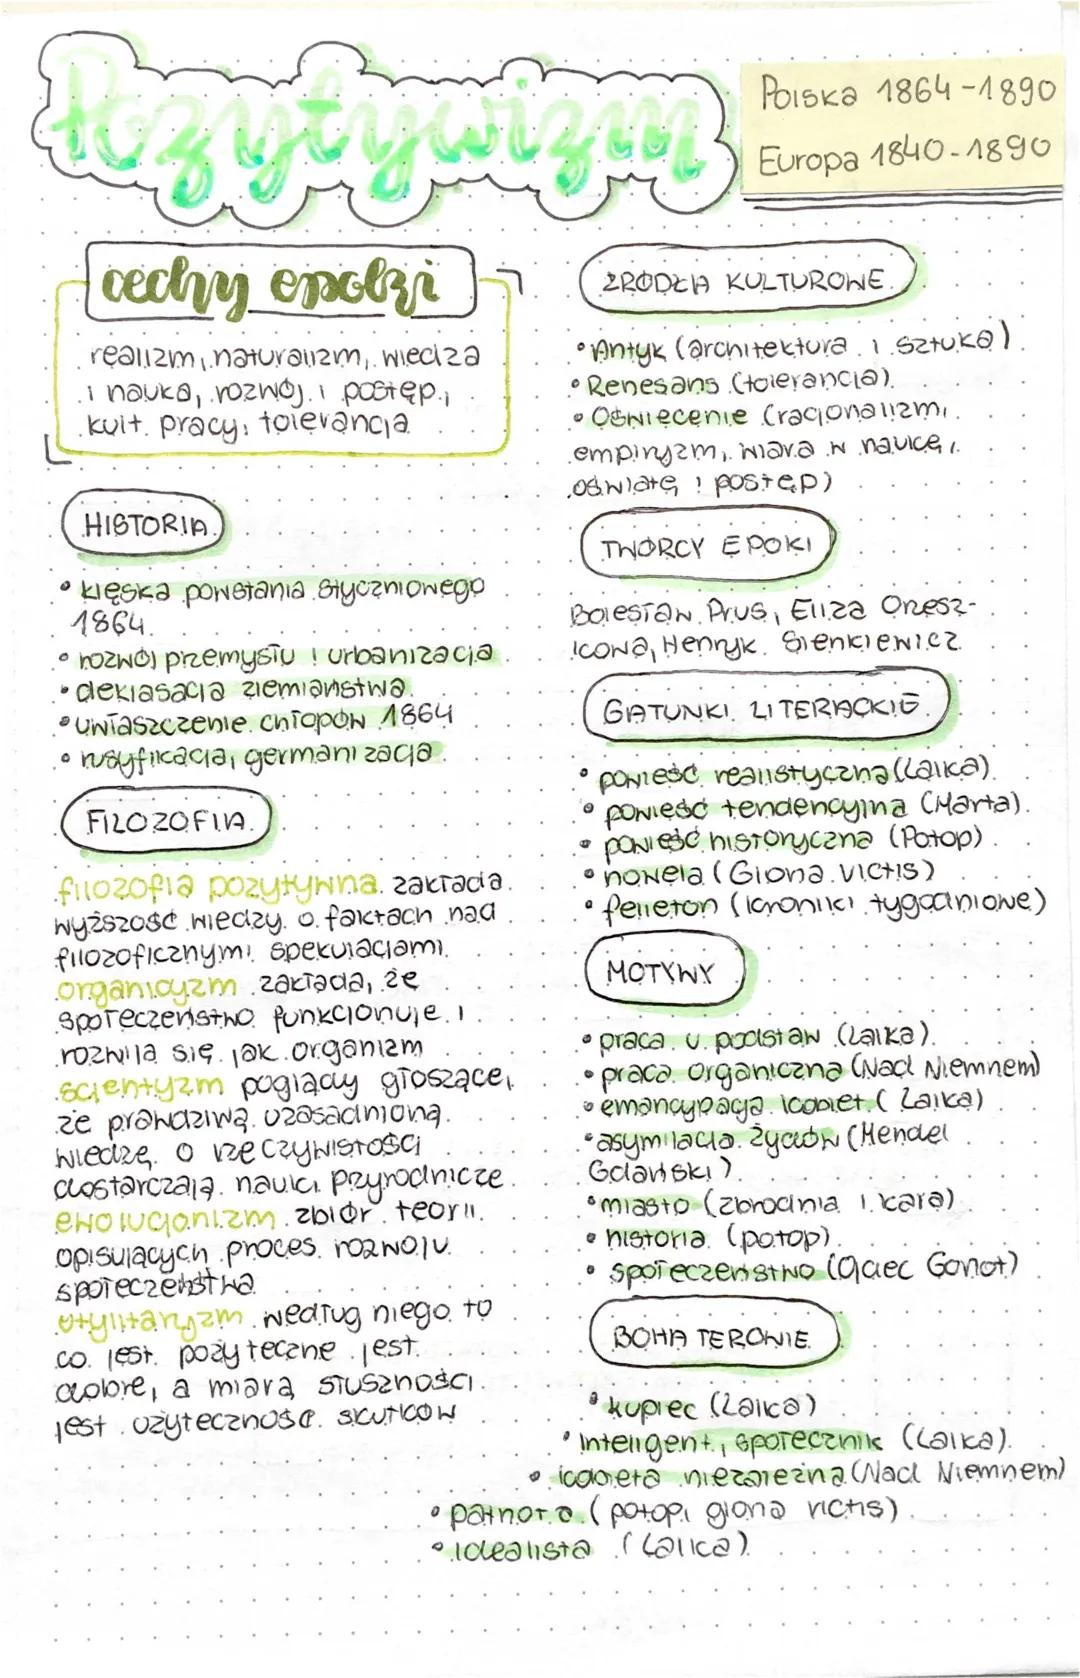 Pozytywizm
Polska 1864-1890
Europa 1840-1890
cechy epoki
realizm, naturalizm, wiedza
i nauka, rozwój i postęp,
kult pracy, tolerancja
HISTORIA
• klęska powstania styczniowego
1864
• rozwój przemysłu i urbanizacja
• deklasacja ziemiaństwa
• uwłaszczenie chłopów 1864
• rusyfikacja, germanizacja
FILOZOFIA
filozofia pozytywna zakłada
wyższość wiedzy o faktach nad
filozoficznymi spekulacjami
organicyzm zakłada, że
społeczeństwo funkcjonuje i
rozwija się jak organizm
scientyzm poglądy głoszące,
że prawdziwą uzasadnioną
wiedzę o rzeczywistości
dostarczają nauki przyrodnicze
ewolucjonizm zbiór teorii
opisujących proces rozwoju
społeczeństwa
utylitaryzm według niego to
co jest pożyteczne jest
dobre, a miarą słuszności
jest użyteczność skutków
ŹRÓDŁA KULTUROWE
• Antyk (architektura i sztuka)
• Renesans (tolerancja)
• Oświecenie (racjonalizm,
empiryzm, wiara w naukę,
oświatę i postęp)
TWÓRCY EPOKI
Bolesław Prus, Eliza Orzesz-
kowa, Henryk Sienkiewicz
GATUNKI LITERACKIE
• powieść realistyczna (Lalka)
• powieść tendencyjna (Marta)
• powieść historyczna (Potop)
• nowela (Glona victis)
• felieton (kroniki tygodniowe)
MOTYWY
• praca u podstaw (Lalka)
• praca organiczna (Nad Niemnem)
• emancypacja kobiet (Lalka)
• asymilacja Żydów (Mendel
Gdański)
• miasto (zbrodnia i kara)
• historia (potop)
• społeczeństwo (Ojciec Goriot)
BOHATEROWIE
• kupiec (Lalka)
• inteligent, społecznik (Lalka)
• kobieta niezależna (Nad Niemnem)
• patriota (potop, glona victis)
• idealista (Lalka)